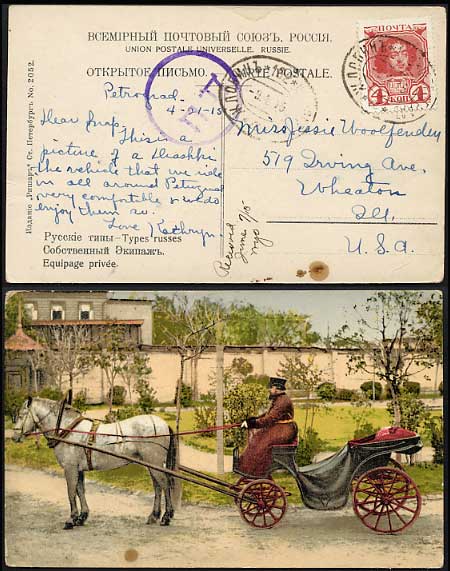 ВСЕМІРНЫЙ ПОЧТОВЫЙ СОЮЗЪ. РОССІЯ.
UNION POSTALE UNIVERSELLE. RUSSIE.
ОТКРЫТОЕ ПИСЬМО. CARTE POSTALE.
ПОЧТА
4 4
КОП
T
Petrograd.
4-21-15
Dear Snap.
This is a
picture of a
the vehicle that we ride
in all around
very comfortable & we do
enjoy them so.
Love Kathryn.
Miss Jessie Woolfenden
579 Irving Ave.
Wheaton
Ill.
U.S.A.
Received
June 7/15
Изданіе „Ришаръ" Ст. Петербургъ No. 2052.
Русскіе типы-Types russes
Собственный Экипажъ.
Equipage privée.